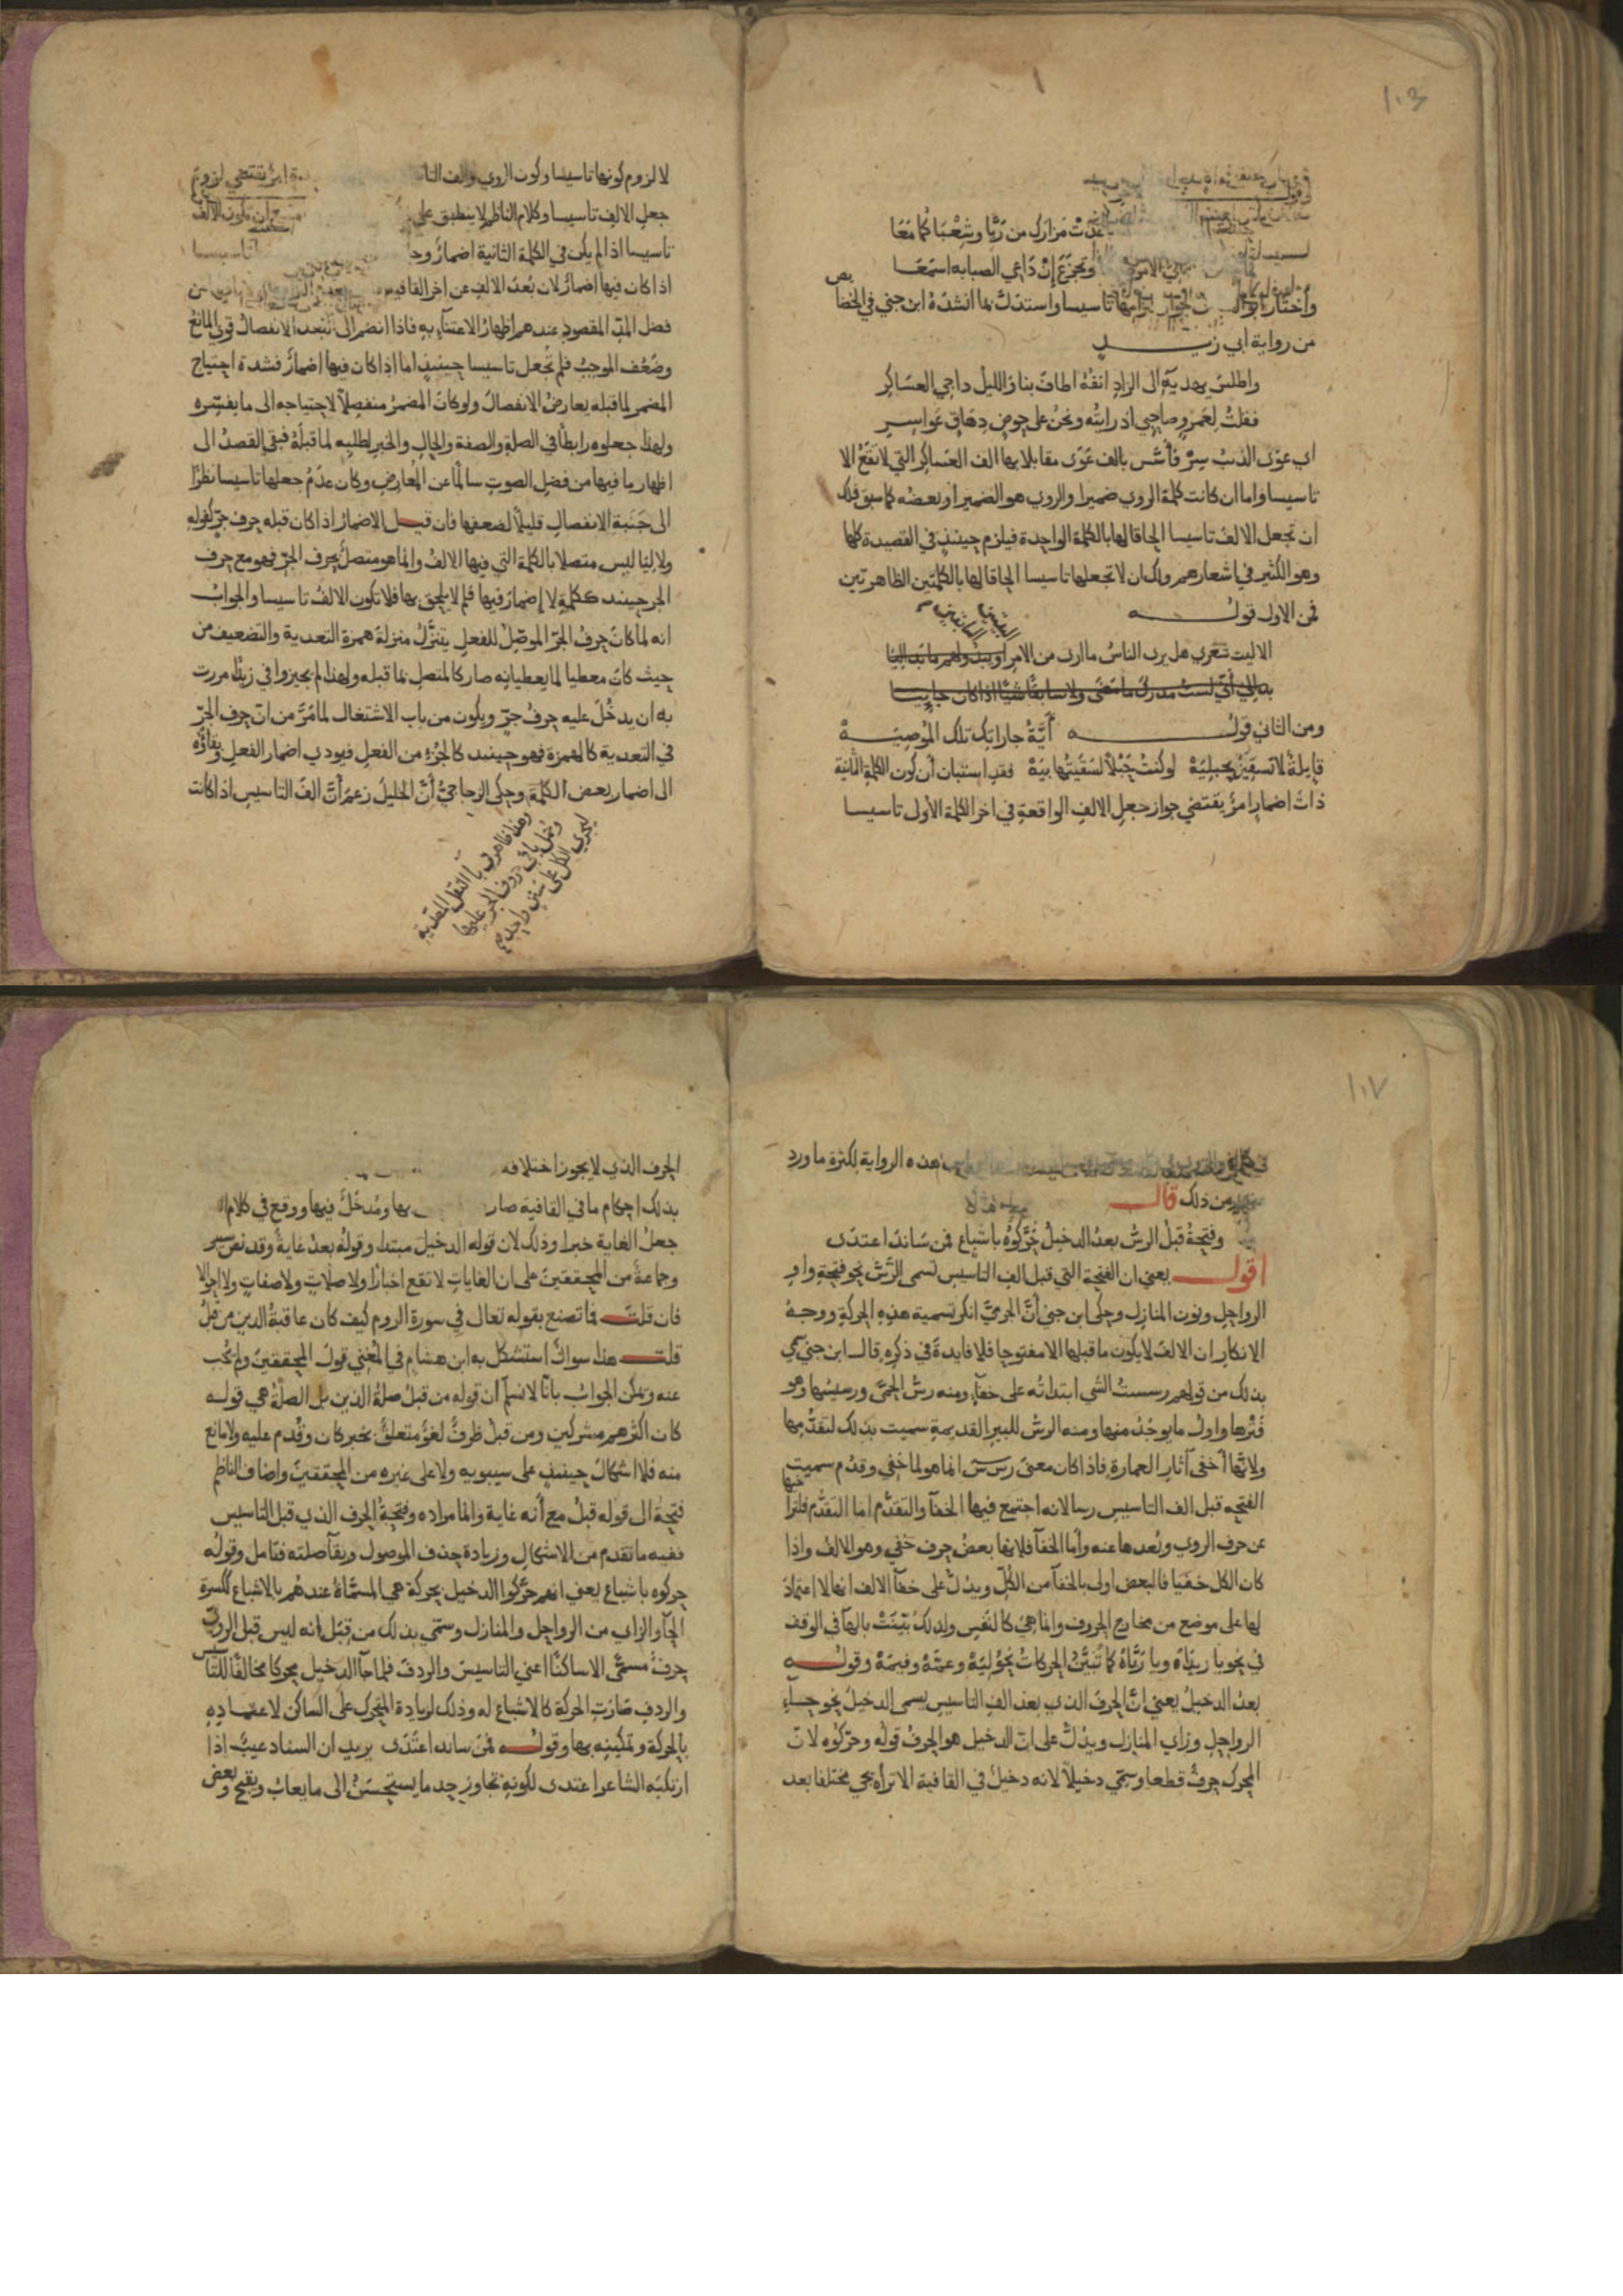 ١٠٦
غدت مزارك من ريّا وشعباكما معا
وتجزع إن داعي الصبابة اسمعا
تاسيسا واستدل بما انشده ابن جني في الخصا
يص
من رواية ابي زيد
واطلس يهديه الى الزاد انفه اطاف بنا والليل داجي العساكر
فقلت لعمرو صاحبي اذ رايته ونحن على خوص دقاق عواسر
اي عوى الذئب سر فأسّس بالف عوى مقابلا بها الف العساكر التي لا تقع الا
تاسيسا واما ان كانت كلمة الروي ضميرا والروي هو الضمير او بعضه كما سبق فلك
ان تجعل الالف تاسيسا الحاقا لها بالكلمة الواحدة فيلزم حينئذ في القصيدة كلها
وهو الكثير في اشعارهم ولك ان لا تجعلها تاسيسا الحاقا لها بالكلمتين الظاهرتين
فمن الاول قوله
الا ليت شعري هل يرى الناس ما ارى من الامر او يبدو لهم ما بدا ليا
بدا لي أني لست مدرك ما مضى ولا سابقا شيئا اذا كان جاييا
ومن الثاني قوله أيّة جاراتك تلك الموصيه
قايلة لا تسقين بحبليه لو كنت حبلا لسقيتها بيه فقد استبان أن كون الكلمة الثانية
ذات اضمار امر يقتضي جواز جعل الالف الواقعة في اخر الكلمة الأولى تاسيسا
لا لزوم كونها تاسيسا وكون الروي والف التا امر يقتضي لزوم
جعل الالف تاسيسا وكلام الناظم لا ينطبق على ان تكون الالف
تاسيسا اذا لم يكن في الكلمة الثانية اضمار تاسيسا
اذا كان فيها اضمار لان بعد الالف عن اخر القافية
فضل المدّ المقصود عندهم اظهار الاعتناء به فاذا انضم الى تبعده الانفصال قوي المانع
وضعف الموجب فلم تجعل تاسيسا حينئذ اما اذا كان فيها اضمار فشدة احتياج
المضمر لما قبله يعارض الانفصال ولو كان المضمر منفصلا لاحتياجه الى ما يفسره
ولهذا جعلوه رابطا في الصلة والصفة والحال والخبر لطلبه لما قبله فبقي القصد الى
اظهار ما فيها من فضل الصوت سالما عن المعارض وكان عدم جعلها تاسيسا نظرا
الى جنبة الانفصال قليلا لضعفها فان قيل الاضمار اذا كان قبله حرف جرّ كقوله
ولا ليا ليس متصلا بالكلمة التي فيها الالف وانما هو متصل بحرف الجر فهو مع حرف
الجر حينئذ ككلمة لا إضمار فيها فلم لا يلحق بها فلا تكون الالف تاسيسا والجواب
انه لما كان حرف الجرّ الموصّل للفعل يتنزّل منزلة همزة التعدية والتضعيف من
حيث كان معطيا لما يعطيانه صار كالمتصل بما قبله ولهذا لم يجيزوا في زيدا مررت
به ان يدخل عليه حرف جرّ ويكون من باب الاشتغال لما مرّ من انّ حرف الجرّ
في التعدية كالهمزة فهو حينئذ كالجزء من الفعل فيودي اضمار الفعل وبقاؤه
الى اضمار بعض الكلمة وحكى الزجاجيّ أنّ الخليل زعم أنّ الف التاسيس اذا كانت
وهذا ظاهر في با النقل المتعدية
وحمل باقي حروف الجر عليها
ليجري الكل على سنن واحد
١٠٧
هذه الرواية لكثرة ما ورد
من ذلك قال
وفتحة قبل الرسّ بعد الدخيل حرّكوه باشباع فمن ساند اعتدى
اقول يعني ان الفتحة التي قبل الف التاسيس تسمى الرّسّ نحو فتحة واو
الرواحل ونون المنازل وحكى ابن جني أنّ الجرميّ انكر تسمية هذه الحركة ووجه
الانكار ان الالف لا يكون ما قبلها الا مفتوحا فلا فايدة في ذكره قال ابن جني سمي
بذلك من قولهم رسست الشي ابتداته على خفاء ومنه رسّ الحمّى ورسيسها وهو
فترها واول ما يوجد منها ومنه الرسّ للبير القديمة سميت بذلك لتقدمها
ولانّها أخفى آثار العمارة فاذا كان معنى رس س انما هو لما خفي وقدم سميت
الفتحه قبل الف التاسيس رسا لانه اجتمع فيها الخفآ والتقدّم اما التقدّم فلترا
خيها
عن حرف الروي وبعدها عنه وأما الخفآ فلانها بعض حرف خفي وهو الالف واذا
كان الكل خفيا فالبعض اولى بالخفآ من الكلّ ويدلّ على خفآ الالف انها لا اعتماد
لها على موضع من مخارج الحروف وانما هي كالنفس ولذلك بيّنت بالهآ في الوقف
في نحو يا ربّاه ويا زيداه كما تبيّن الحركات بنحو ليه وعمّه وفيمه وقوله
بعد الدخيل يعني انّ الحرف الذي بعد الف التاسيس يسمى الدخيل نحو حاء
الرواحل وزاي المنازل ويدلّ على انّ الدخيل هو الحرف قوله وحرّكوه لانّ
المحرك حرف قطعا وسمّي دخيلا لانه دخيل في القافية الا تراه يجي مختلفا بعد
الحرف الذي لا يجوز اختلافه
بذلك احكام ما في القافية صار بها ومدخل فيها ووقع في كلام
جعل الغاية خبرا وذلك لان قوله الدخيل مبتدا وقوله بعد غاية وقد نص
وجماعة من المحققين على ان الغايات لا تقع اخبارا ولا صلات ولا صفات ولا احوالا
فان قلت فما تصنع بقوله تعالى في سورة الروم كيف كان عاقبة الذين من قبل
قلت هذا سوال استشكل به ابن هشام في المغني قول المحققين ولم يجب
عنه ويمكن الجواب بانّا لا نسلم ان قوله من قبل صلة الذين بل الصلة هي قوله
كان اكثرهم مشركين ومن قبل ظرف لغو متعلق بخبر كان وقدم عليه ولا مانع
منه فلا اشكال حينئذ على سيبويه ولا على غيره من المحققين واضاف الناظم
فتحة الى قوله قبل مع أنه غاية وانما مراده وفتحة الحرف الذي قبل التاسيس
ففيه ما تقدم من الاشكال وزيادة حذف الموصول وبقآ صلته فتامل وقوله
حركوه باشباع يعني انهم حرّكوا الدخيل بحركة هي المسمّاة عندهم بالاشباع ككسرة
الحآ والزاي من الرواحل والمنازل وسمّي بذلك من قبل انه ليس قبل الرويّ
حرف مسمّى الا ساكنا اعني التاسيس والردف فلما جآ الدخيل محركا مخالفا للتا
سيس
والردف صارت الحركة كالاشباع له وذلك لزيادة المتحرك على الساكن لاعتماده
بالحركة وتمكينه بها وقوله فمن ساند اعتدى يريد ان السناد عيب اذا
ارتكبه الشاعر اعتدى لكونه تجاوز حد ما يستحسن الى ما يعاب ويقبح وبعض